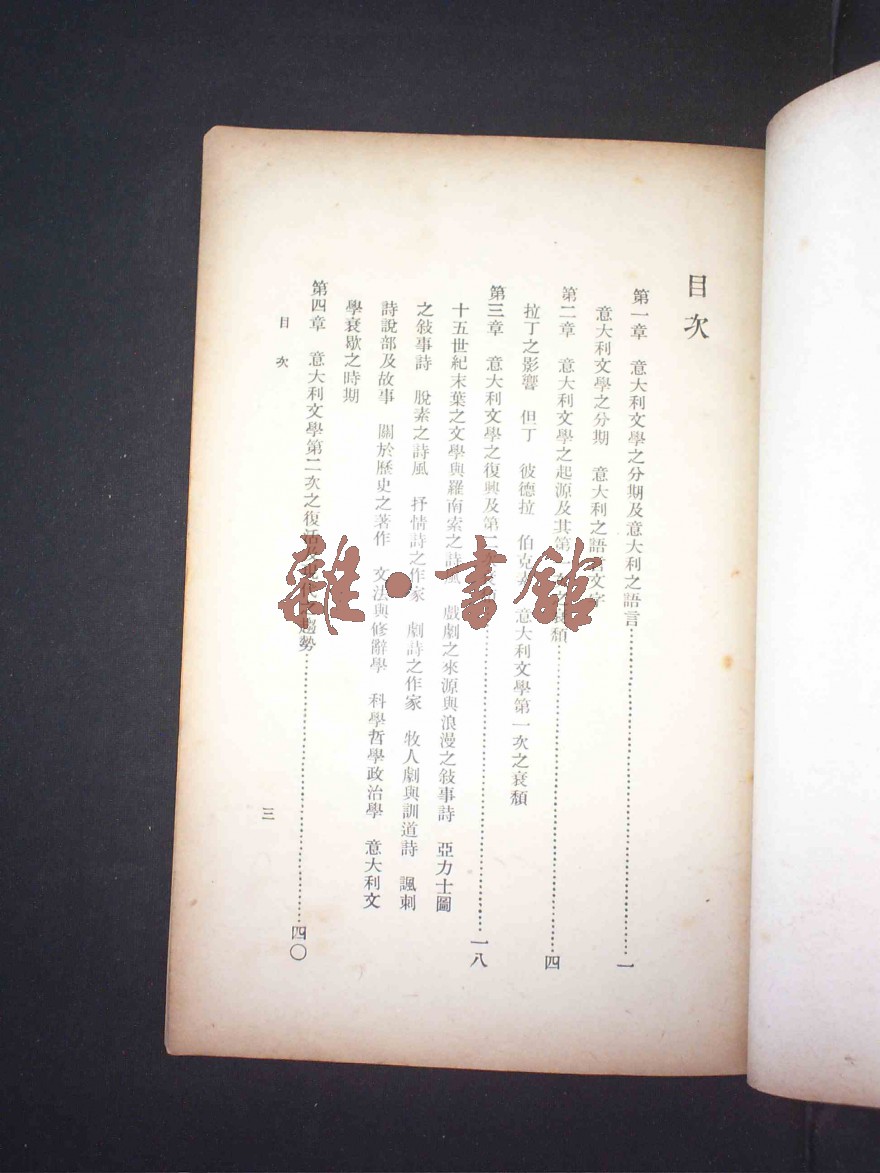 目次
第一章　意大利文學之分期及意大利之語言…………一
意大利文學之分期　意大利之語言文字
第二章　意大利文學之起源及其第一次之衰頹…………四
拉丁之影響　但丁　彼德拉　伯克　意大利文學第一次之衰頹
第三章　意大利文學之復興及第二…………一八
十五世紀末葉之文學與羅南索之詩風　戲劇之來源與浪漫之敍事詩　亞力士圖
之敍事詩　脫素之詩風　抒情詩之作家　劇詩之作家　牧人劇與訓道詩　諷刺
詩說部及故事　關於歷史之著作　文法與修辭學　科學哲學政治學　意大利文
學衰歇之時期
第四章　意大利文學第二次之復活及現代之趨勢…………四〇
目次
三
雜·書館